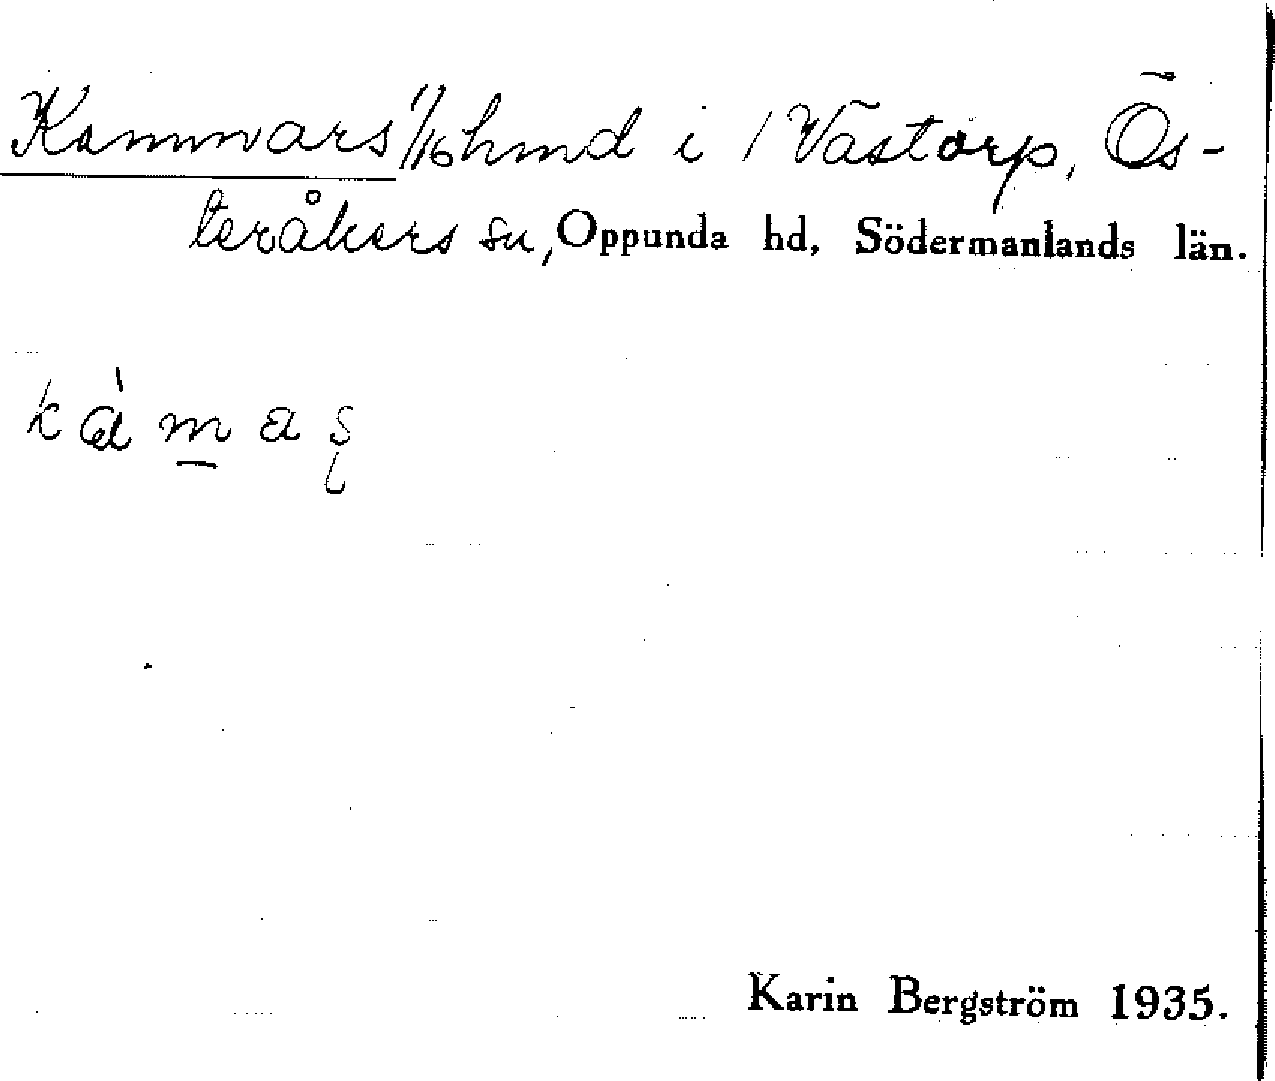 Kammars 1/16 hmd i 1 Västorp, Ös-
teråkers sn, Oppunda hd, Södermanlands län.
kàmas
Karin Bergström 1935.